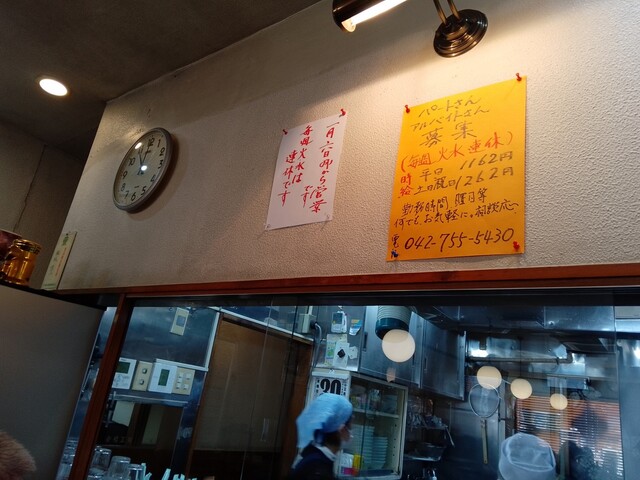 一月六日(月)から営業
です
毎週火水は
連休です
パートさん
アルバイトさん
募集
(毎週 火水連休)
時給
平日 1162円
土日祝日 1262円
勤務時間、曜日等
何でもお気軽に、相談応
電
042-755-5430
20